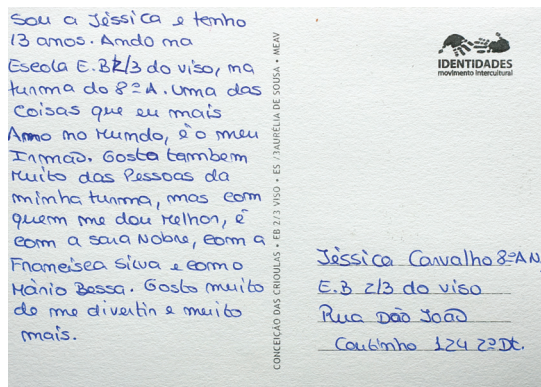 Sou a Jéssica e tenho
13 anos. Ando na
Escola E.B2/3 do viso, na
turma do 8ºA. Uma das
coisas que eu mais
Amo no Mundo, é o meu
Irmão. Gosto tambem
Muito das Pessoas da
minha turma, mas com
quem me dou Melhor, é
com a Sara Nobre, com a
Francisca Silva e com o
Mário Bessa. Gosto muito
de me divertir e muito
mais.
CONCEIÇÃO DAS CRIOULAS • EB 2/3 VISO • ES /3AURÉLIA DE SOUSA • MEAV
IDENTIDADES
movimento intercultural
Jéssica Carvalho 8ºA N
E.B 2/3 do viso
Rua Dão João
Coutinho 124 2ºDt.